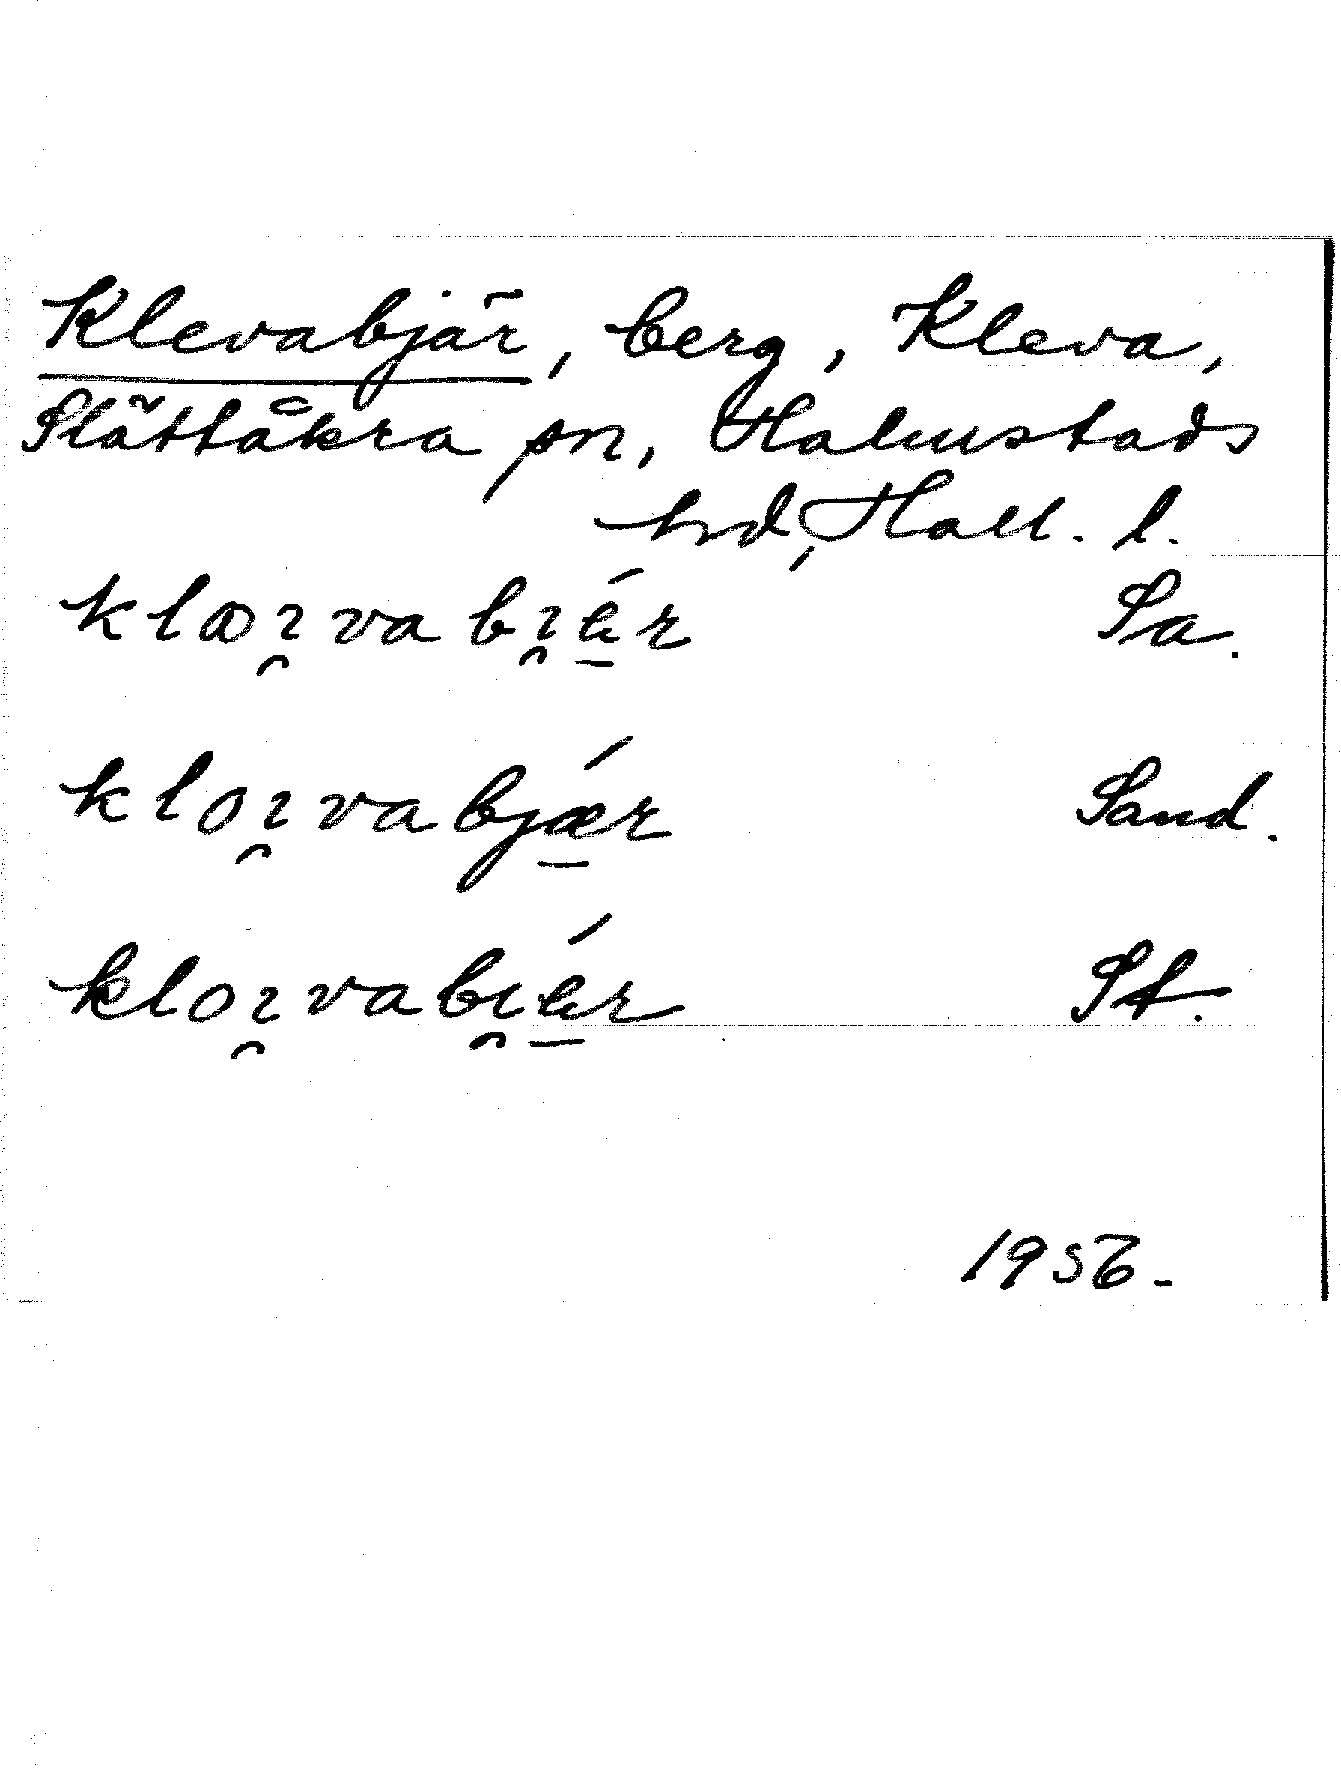 Klevabjär, berg, Kleva,
Slättåkra sn, Halmstads
hd, Hall. l.
klɷɪ̯vabɪ̯ǽr Sa.
kloɪ̯vabjǽr Sand.
kloɪ̯vabɪ̯ǽr St.
1956.